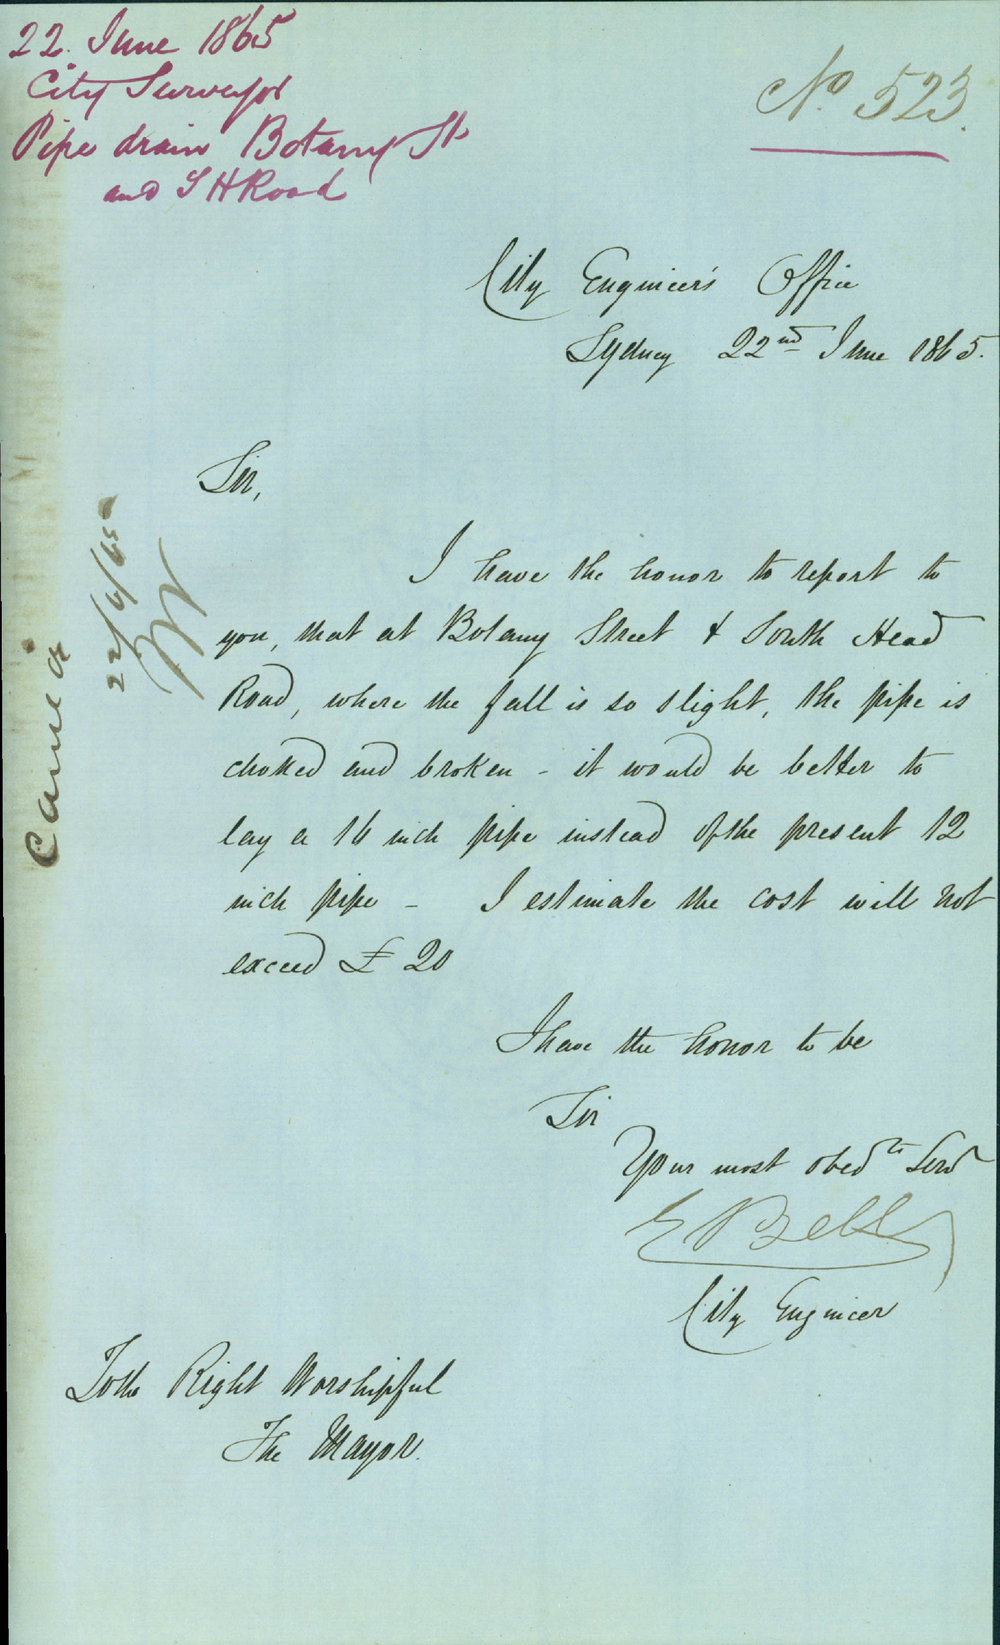 22. June 1865
City Surveyor
Pipe drain Botany St
and S H Road
No. 523.
City Engineer's Office
Sydney 22nd June 1865.
Sir,
I have the honor to report to
you, that at Botany Street & South Head
Road, where the fall is so slight, the pipe is
choked and broken - it would be better to
lay a 16 inch pipe instead of the present 12
inch pipe - I estimate the cost will not
exceed £ 20
I have the honor to be
Sir
Your most obedt Servt
E Bell
City Engineer
To the Right Worshipful
The Mayor.
22/6/65